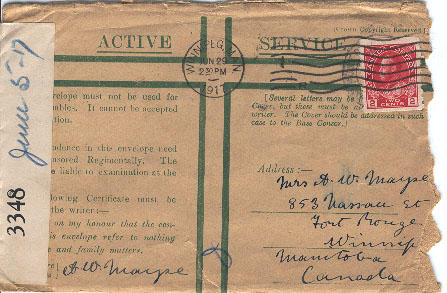 [Crown Copyright Reserved.]
ACTIVE SERVICE
WINNIPEG, MAN
JUN 29
2 30 PM
1917
2 CENTS 2
June 5-17
3348
velope must not be used for
ables. It cannot be accepted
ation.
[Several letters may be
Cover, but these must be
writer. The Cover should be addressed in such
case to the Base Censor.]
ondence in this envelope need
nsored Regimentally. The
e liable to examination at the
llowing Certificate must be
the writer:—
on my honour that the con-
is envelope refer to nothing
e and family matters.
A W Mayse
Address:—
Mrs A. W. Mayse
853 Nassau St
Fort Rouge
Winnip
Manitoba
Canada